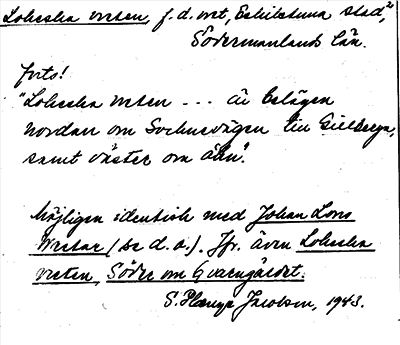 Loheska vreten, f.d. vret, Eskilstuna stad,²
Södermanlands län.
forts!
"Loheska vreten --- är belägen
nordan om Sochnevägen till Gillberga,
samt väster om åhn".
Möjligen identisk med Johan Lors
Wretar (se d. o.). Jfr. även Loheska
vreten, Söder om Qvarngärdet.
S. Jacobson, 1943.